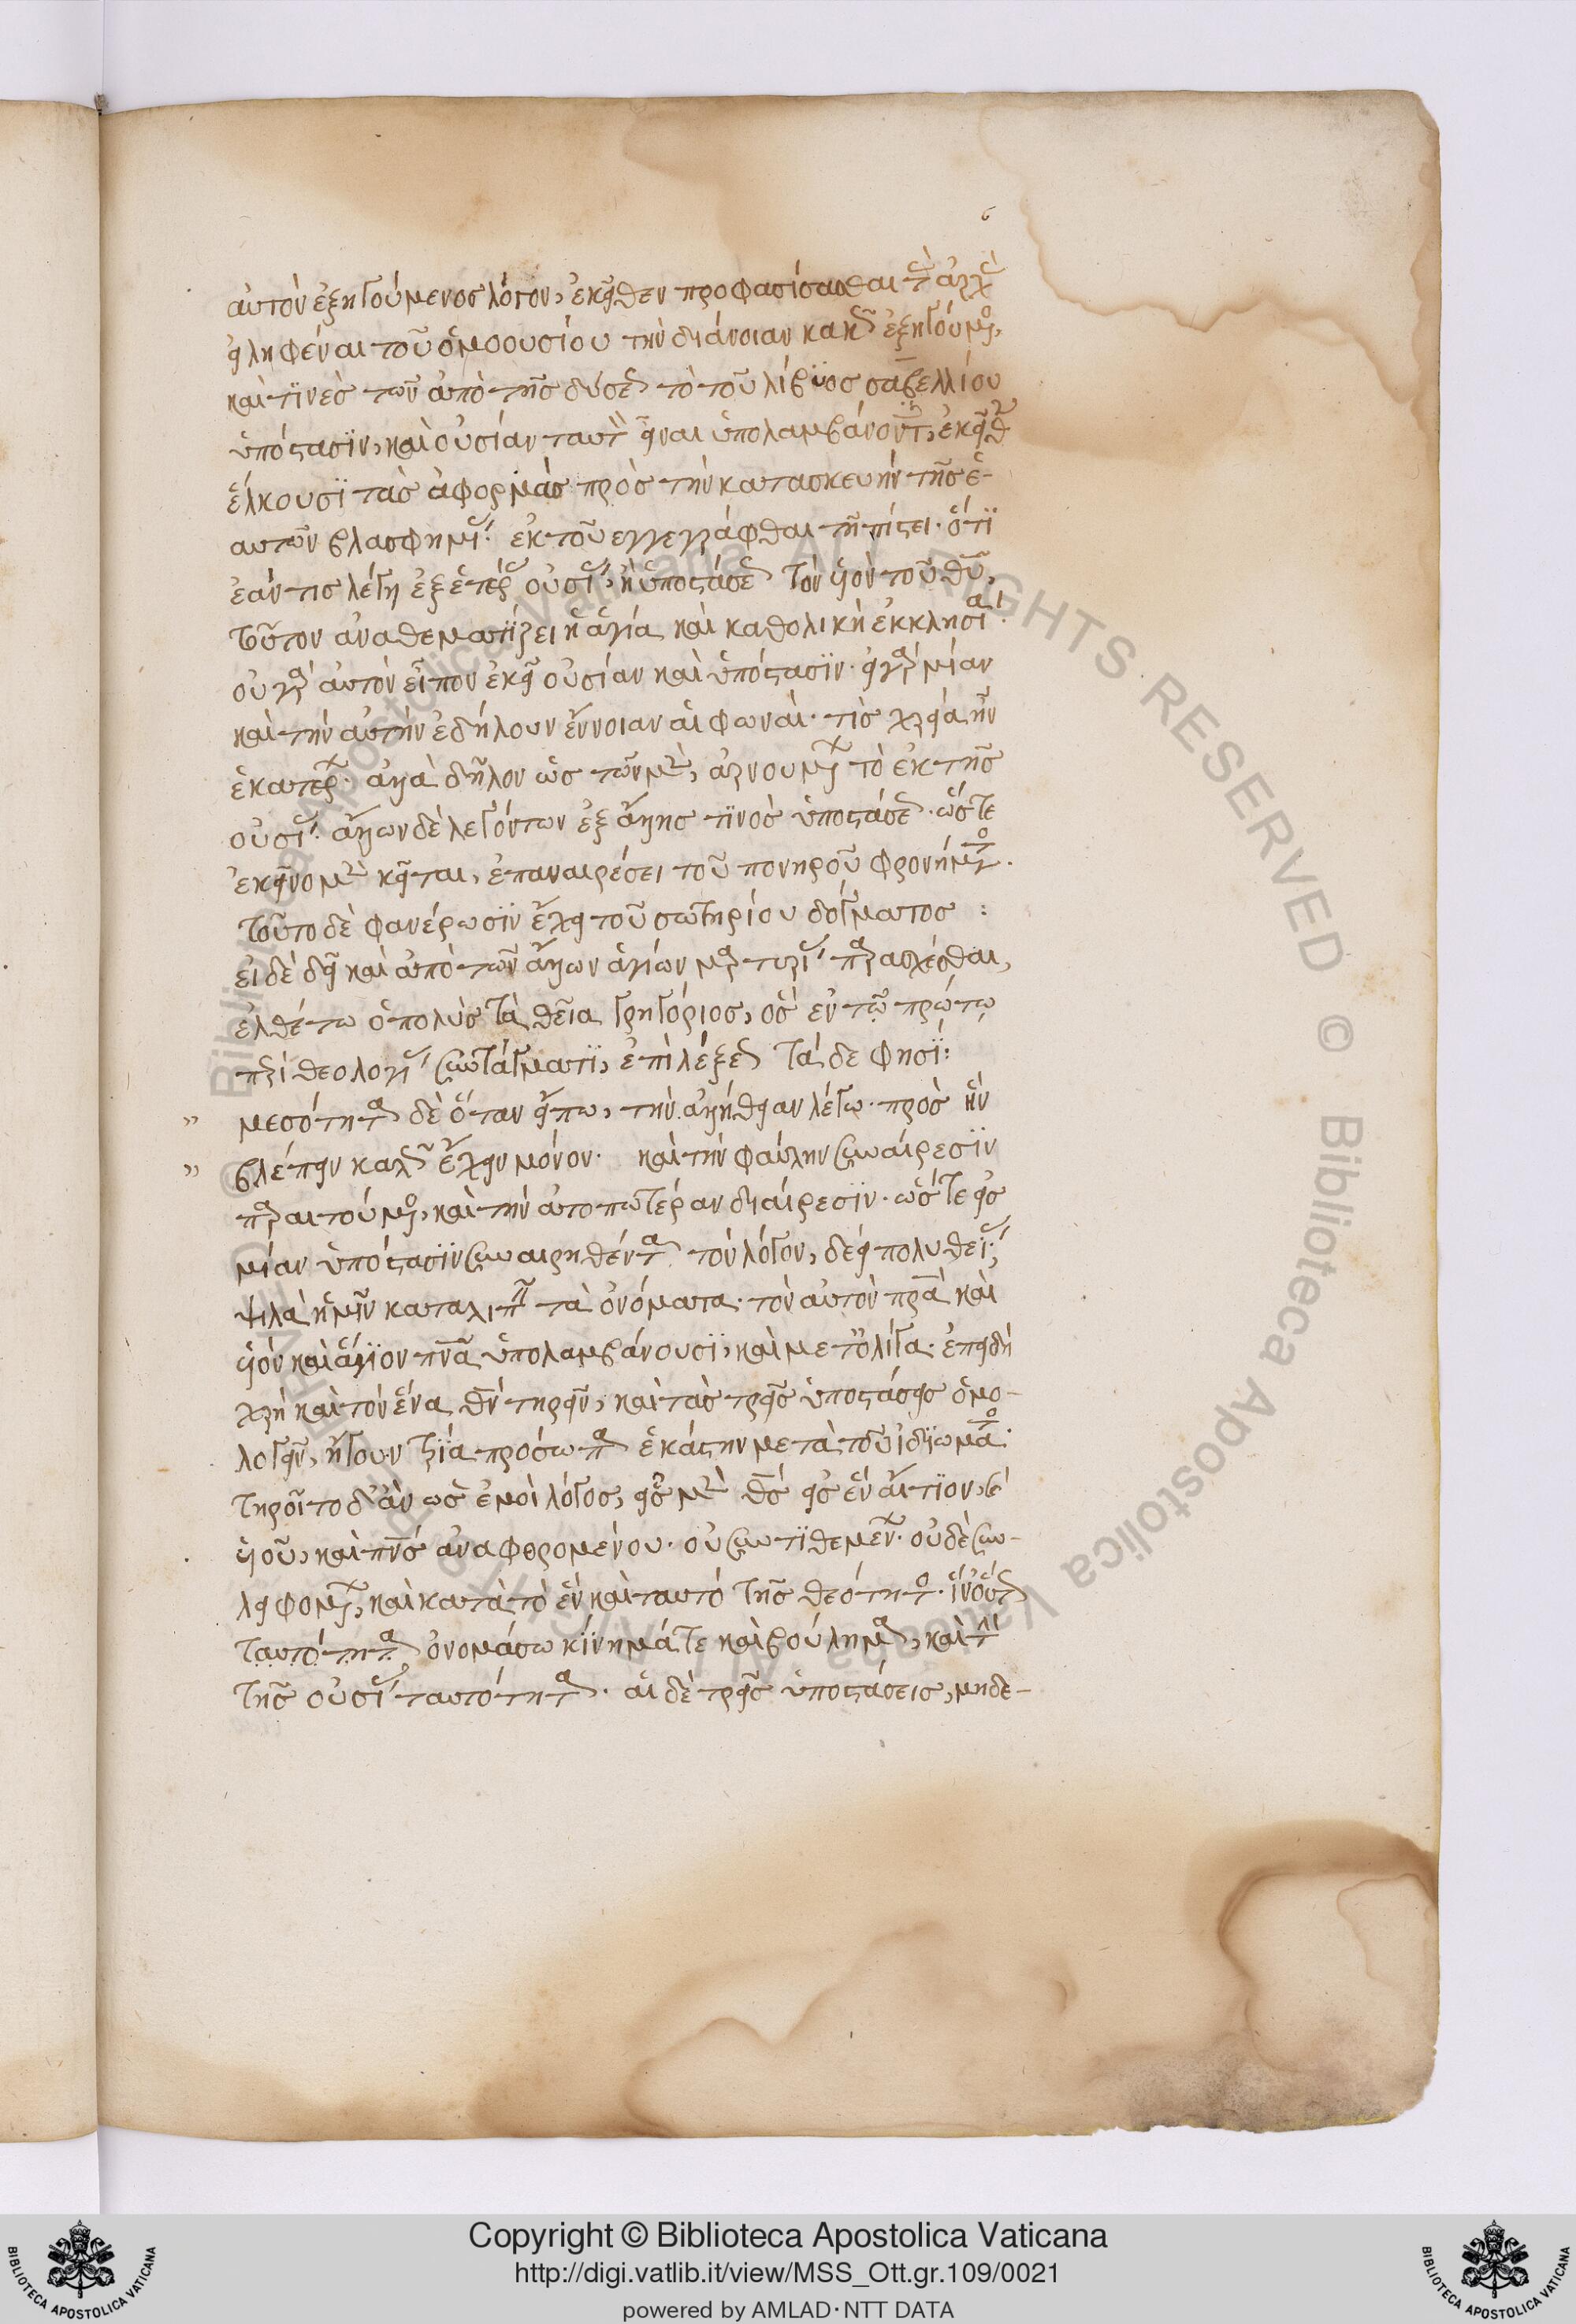 6
αὐτὸν ἐξηγούμενος λόγον, ἐκεῖθεν προφασίσασθαι τὴν ἀρχὴν
εἰληφέναι τοῦ ὁμοουσίου τὴν διάνοιαν κακῶς ἐξηγούμενος,
καὶ τϊνὲς τῶν ἀπὸ τῆς δύσεως τὸ τοῦ λίβϋος σαβελλίου
ὑπόστασϊν, καὶ οὐσίαν ταυτὸν εἶναι ὑπολαμβάνοντες, ἐκεῖθεν
ἕλκουσϊ τὰς ἀφορμὰς πρὸς τὴν κατασκευὴν τῆς ἑ-
αυτῶν βλασφημίας. ἐκ τοῦ εγγεγράφθαι τῆ πίστει· ὅτϊ
ἐάν τις λέγη ἐξ ἑτέρας οὐσίας, ἢ ὑποστάσεως τὸν υἱὸν τοῦ θῦ,
τοῦτον αναθεματίζει ἡ ἁγία καὶ καθολικὴ ἐκκλησία.
οὐ γὰρ αὐτὸν εἶπον ἐκεῖ οὐσίαν καὶ ὑπόστασϊν· εἰ γὰρ μίαν
καὶ τὴν αὐτὴν ἐδήλουν ἔννοιαν αἱ φωναὶ· τίς χρεία ἦν
ἑκατέρων· ἀλλὰ δῆλον ὡς τῶν μὲν, ἀρνουμένων τὸ ἐκ τῆς
οὐσίας· ἄλλων δὲ λεγόντων ἐξ ἄλλης τϊνὸς ὑποστάσεως· ὥστε
ἐκεῖνο μὲν κεῖται, ἐπαναιρέσει τοῦ πονηροῦ φρονήματος.
τοῦτο δὲ φανέρωσϊν ἔχει τοῦ σωτηρίου δόγματος :
εἰ δὲ δεῖ καὶ ἀπὸ τῶν ἄλλων ἁγίων μαρτυρίας παρασχέσθαι,
ἐλθέτω ὁ πολὺς τὰ θεῖα γρηγόριος, ὃς ἐν τῷ πρώτῳ
περὶ θεολογίας συντάγματϊ, ἐπὶ λέξεως τάδε φησϊ:
" μεσότητα δὲ ὅταν εἴπω, τὴν ἀλήθειαν λέγω· πρὸς ἣν
" βλέπειν καλῶς ἔχειν μόνον· καὶ τὴν φαύλην συναίρεσϊν
παραιτούμενος, καὶ τὴν ἀτοπωτέραν διαίρεσϊν· ὥστε εἰς
μίαν ὑπόστασϊν συναιρηθέντα τὸν λόγον, δέει πολυθεΐας,
ψιλὰ ἡμῖν καταλιπεῖν τὰ ὀνόματα· τὸν αὐτὸν πρα καὶ
υἱὸν καὶ ἅγϊον πνα ὑπολαμβάνουσϊ, καὶ μετ' ὀλίγα· ἐπειδὴ
χρὴ καὶ τὸν ἕνα θν τηρεῖν, καὶ τὰς τρεῖς ὑποστάσεις ὁμο-
λογεῖν, ἤγουν τρία πρόσωπα ἑκάστην μετὰ τοῦ ἰδϊώματος·
τηροῖτο δ' ἂν ὡς ἐμοὶ λόγος, εἷς μὲν θς εἰς ἓν αἴτϊον, καὶ
υἱοῦ, καὶ πνς ἀναφερομένου· οὐ συντϊθεμένων· οὐδὲ συν-
αλειφομένων, καὶ κατὰ τὸ ἓν καὶ ταυτὸ τῆς θεότητος· ἵν' οὕτως
ταυτότητα ὀνομάσω κϊνημά τε καὶ βούλημα, καὶ τὴν
τῆς οὐσίας ταυτότητα. αἱ δὲ τρεῖς ὑποστάσεις, μηδε-
Copyright © Biblioteca Apostolica Vaticana
http://digi.vatlib.it/view/MSS_Ott.gr.109/0021
powered by AMLAD·NTT DATA
BIBLIOTECA APOSTOLICA VATICANA
BIBLIOTECA APOSTOLICA VATICANA